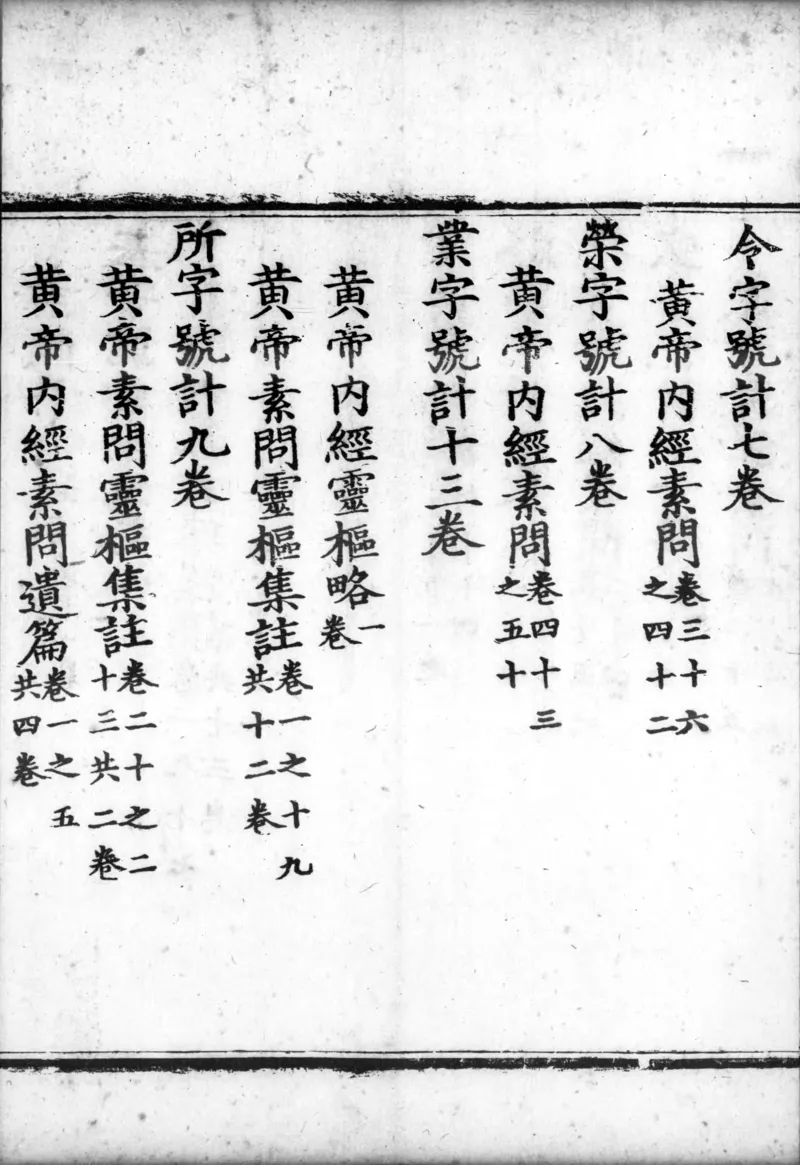 令字號計七卷
黄帝内經素問卷三十六之四十二
榮字號計八卷
黄帝内經素問卷四十三之五十
業字號計十三卷
黄帝内經靈樞略一卷
黄帝素問靈樞集註卷一之十九共十二卷
所字號計九卷
黄帝素問靈樞集註卷二十之二十三共二卷
黄帝内經素問遺篇卷一之五共四卷